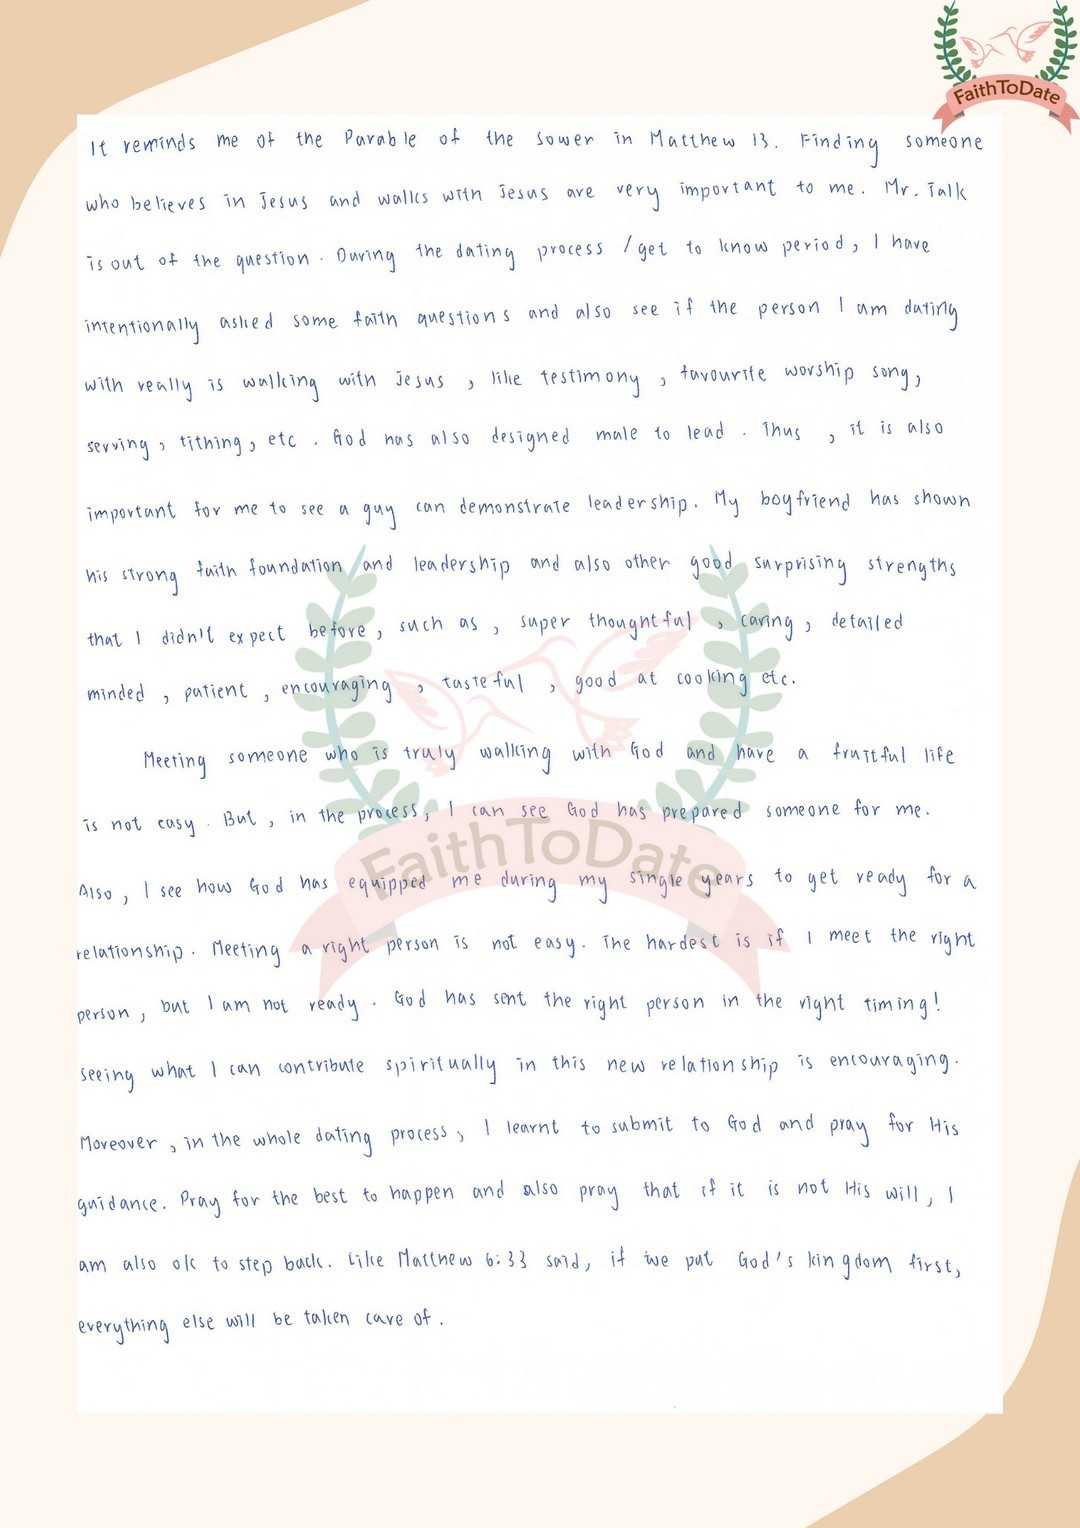 FaithToDate
It reminds me of the Parable of the Sower in Matthew 13. Finding someone
who believes in Jesus and walks with Jesus are very important to me. Mr. Talk
is out of the question. During the dating process / get to know period, I have
intentionally asked some faith questions and also see if the person I am dating
with really is walking with Jesus, like testimony, favourite worship song,
serving, tithing, etc. God has also designed male to lead. Thus, it is also
important for me to see a guy can demonstrate leadership. My boyfriend has shown
his strong faith foundation and leadership and also other good surprising strengths
that I didn't expect before, such as, super thoughtful, caring, detailed
minded, patient, encouraging, tasteful, good at cooking etc.
Meeting someone who is truly walking with God and have a fruitful life
is not easy. But, in the process, I can see God has prepared someone for me.
FaithToDate
Also, I see how God has equipped me during my single years to get ready for a
relationship. Meeting a right person is not easy. The hardest is if I meet the right
person, but I am not ready. God has sent the right person in the right timing!
seeing what I can contribute spiritually in this new relationship is encouraging.
Moreover, in the whole dating process, I learnt to submit to God and pray for His
guidance. Pray for the best to happen and also pray that if it is not His will, I
am also ok to step back. Like Matthew 6:33 said, if we put God's kingdom first,
everything else will be taken care of.